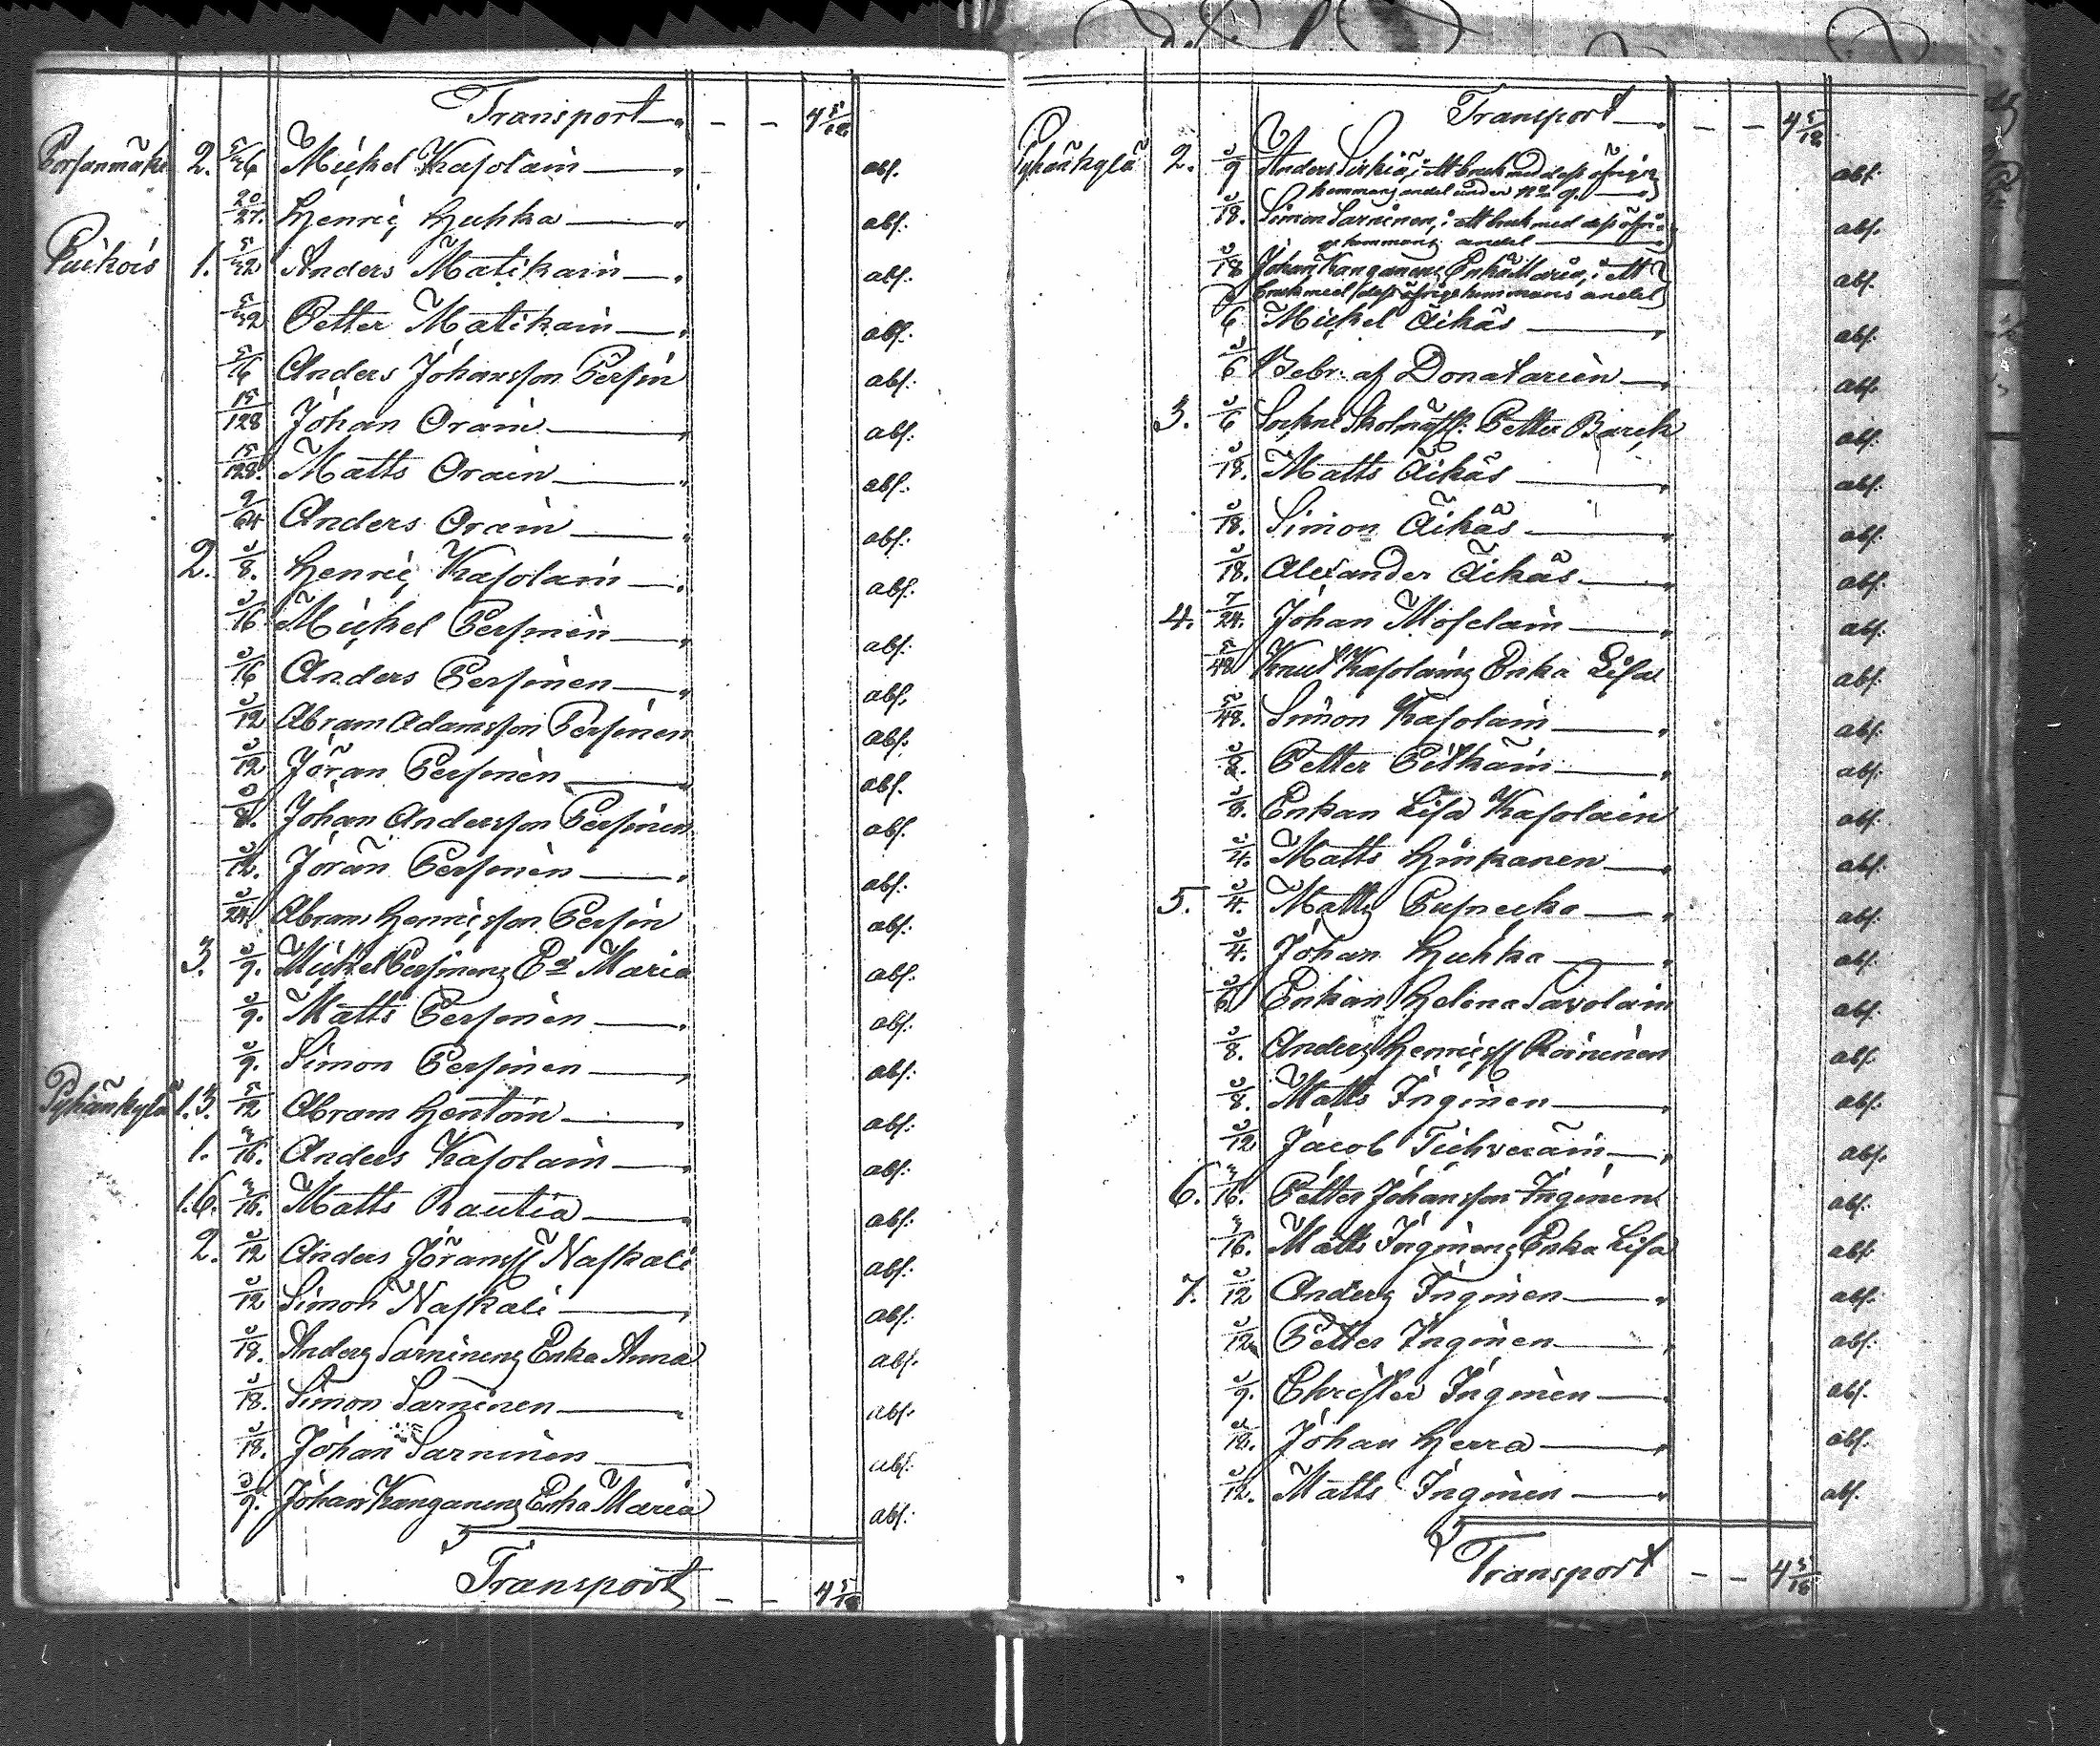 Transport — — 4 5/12
Porsanmäki 2. 5/36 Mickel Kasolain — abs.
20/27. Henric Huhka — abs.
Puikois 1. 5/32 Anders Matikain — abs.
5/32 Petter Matikain — abs.
5/16 Anders Johansson Persin abs.
15/128 Johan Orain — abs.
15/128. Matts Orain — abs.
9/64 Anders Orain — abs.
2. 1/8. Henric Kasolain — abs.
1/16 Mickel Persinen — abs.
1/16 Anders Persinen — abs.
1/12 Abram Adamsson Persinen abs.
1/12 Jöran Persinen — abs.
1/8. Johan Andersson Persinen abs.
1/12. Jöran Persinen — abs.
1/24. Abram Henricsson Persin abs.
3. 1/9. Mickel Persinens Ea Maria abs.
1/9. Matts Persinen — abs.
1/9. Simon Persinen — abs.
Pyhänkylä 1.3. 5/12 Abram Hentoin — abs.
1. 3/16. Anders Kasolain — abs.
1.6. 3/16. Matts Rautia — abs.
2. 1/12 Anders Jöranss Naskali abs.
1/12 Simon Naskali — abs.
1/18. Anders Sarninens Enka Anna abs.
1/18. Simon Sarninen — abs.
1/18. Johan Sarninen — abs.
1/9. Johan Kanganens Enka Maria abs.
Transport — — 4 5/12
Transport — — 4 5/12
Pyhänkylä 2. 1/9 Anders Sirkiä, i ett bruk med dess öfriga abs.
hemmans andel under No 9. —
1/18. Simon Sarninen, i ett bruk med dess öfri- abs.
ge hemmans andel —
1/18 Johan Kanganens Enka Maria, i ett abs.
bruk med dess öfrige hemmans andel
1/6 Mickel Äikäs — abs.
1/6 Bebr. af Donatarien — abs.
3. 1/6 Sockne Skolmäst: Petter Barck abs.
1/18. Matts Äikäs — abs.
1/18. Simon Äikäs — abs.
1/18. Alexander Äikäs — abs.
4. 7/24. Johan Moselain — abs.
5/48 Knut Kasolains Enka Lisa abs.
5/48. Simon Kasolain — abs.
Petter Pitkäin — abs.
1/8. Enkan Lisa Kasolain abs.
1/4. Matts Hinkanen — abs.
5. 1/4. Matts Pusnecka — abs.
1/4. Johan Huhka — abs.
1/6 Enkan Helena Savolain abs.
1/8. Anders Henricss Roininen abs.
1/8. Matts Inginen — abs.
1/12 Jacob Tichveräin — abs.
6. 3/16. Petter Johansson Inginen abs.
3/16. Matts Inginens Enka Lisa abs.
7. 1/12 Anders Inginen — abs.
1/12 Petter Inginen — abs.
1/9. Christer Inginen — abs.
1/12. Johan Herra — abs.
1/12. Matts Inginen — abs.
Transport — — 4 5/12